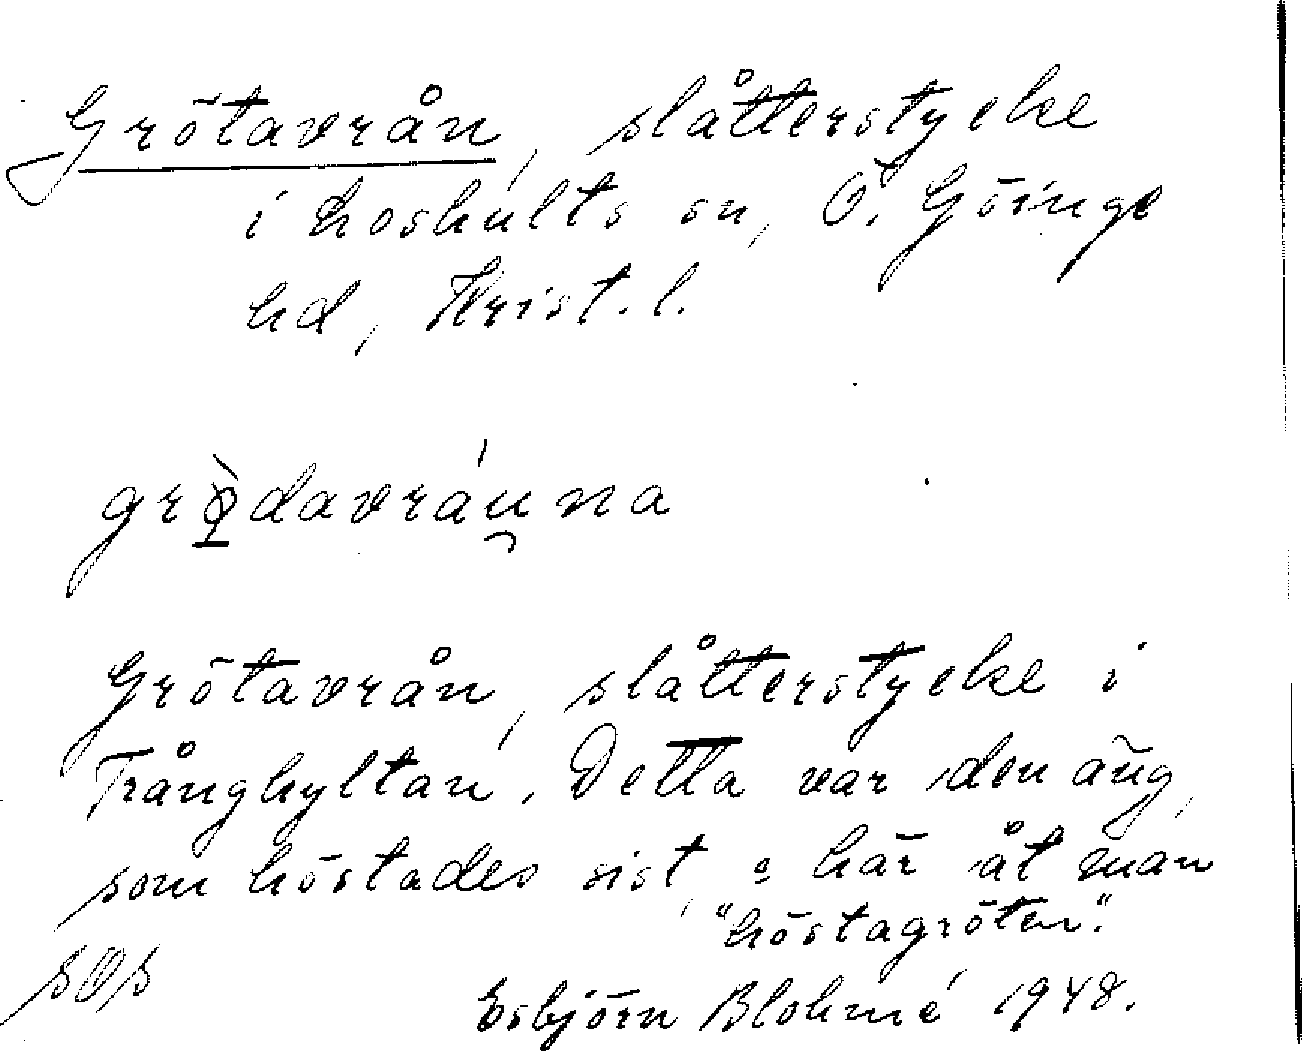 Grötavrån, slåtterstycke
i Loshults sn, Ö. Göinge
hd, Krist. l.
grø̱̀davráu̯na
Grötavrån, slåtterstycke i
Trånghyltan. Detta var den äng,
som höstades sist, o här åt man
"höstagröten".
SOS
Esbjörn Blohmé 1948.